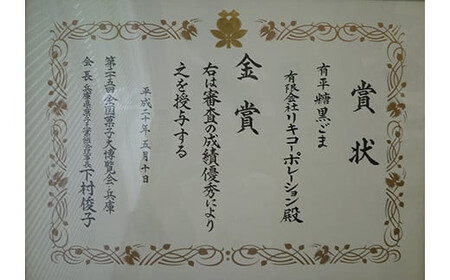 賞状
有平糖黒ごま
有限会社リキコーポレーション殿
金賞
右は審査の成績優秀により
之を授与する
平成二十年五月十日
第二十五回全国菓子大博覧会・兵庫
会長 兵庫県菓子工業組合理事長 下村俊子